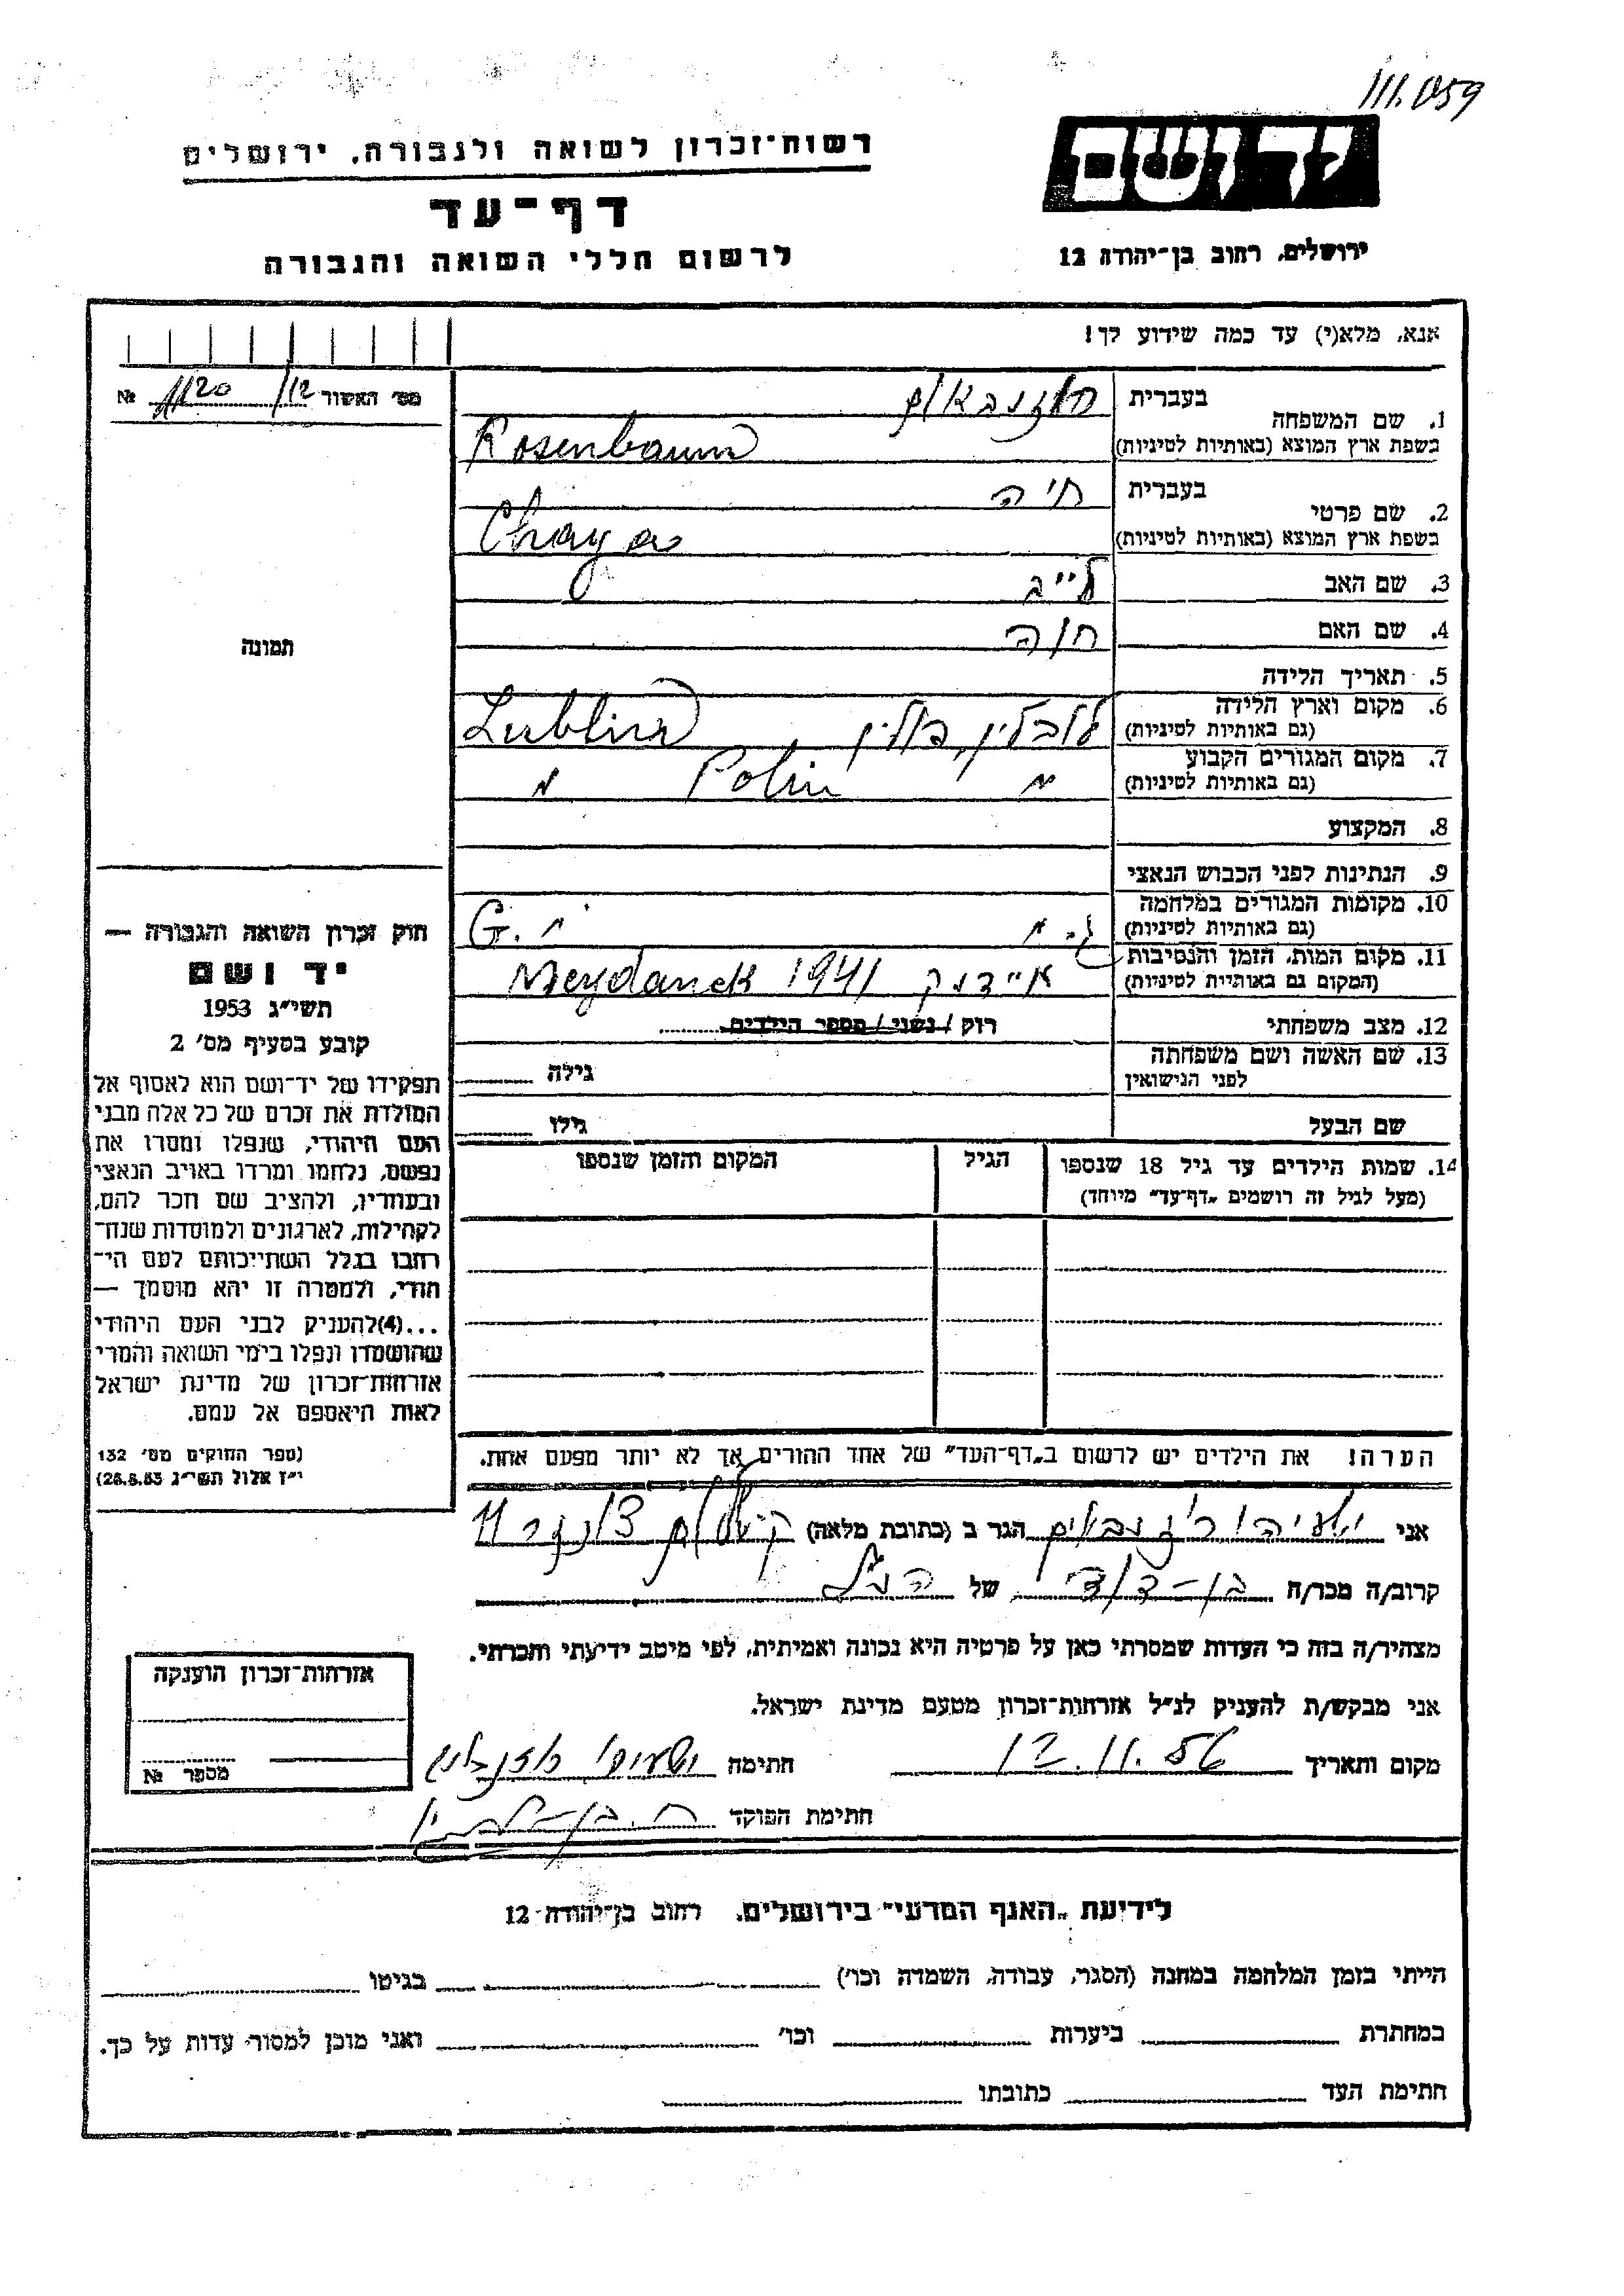 111.059
יד ושם
ירושלים, רחוב בן־יהודה 12
רשות־זכרון לשואה ולגבורה, ירושלים
דף־עד
לרשום חללי השואה והגבורה
אנא, מלא(י) עד כמה שידוע לך!
מס' האשור 12/ 1120 №
1. שם המשפחה
בעברית רוזנבאום
בשפת ארץ המוצא (באותיות לטיניות) Rosenbaum
2. שם פרטי
בעברית חיה
בשפת ארץ המוצא (באותיות לטיניות) Chaya
3. שם האב לייב
4. שם האם חוה
5. תאריך הלידה
6. מקום וארץ הלידה לובלין, פולין Lublin
(גם באותיות לטיניות)
7. מקום המגורים הקבוע
(גם באותיות לטיניות) Polin
8. המקצוע
9. הנתינות לפני הכבוש הנאצי
10. מקומות המגורים במלחמה
(גם באותיות לטיניות) G.
11. מקום המות, הזמן והנסיבות
(המקום גם באותיות לטיניות) מיידנק Meydanek 1941
12. מצב משפחתי רווק / נשוי / מספר הילדים
13. שם האשה ושם משפחתה
לפני הנישואין גילה
שם הבעל גילו
14. שמות הילדים עד גיל 18 שנספו הגיל המקום והזמן שנספו
(מעל לגיל זה רושמים "דף־עד" מיוחד)
הערה! את הילדים יש לרשום ב"דף־העד" של אחד ההורים אך לא יותר מפעם אחת.
תמונה
חוק זכרון השואה והגבורה —
יד ושם
תשי"ג 1953
קובע בסעיף מס' 2
תפקידו של יד־ושם הוא לאסוף אל
המולדת את זכרם של כל אלה מבני
העם היהודי, שנפלו ומסרו את
נפשם, נלחמו ומרדו באויב הנאצי
ובעוזריו, ולהציב שם וזכר להם,
לקהילות, לארגונים ולמוסדות שנח־
רבו בגלל השתייכותם לעם הי־
הודי, ולמטרה זו יהא מוסמך —
...(4)להעניק לבני העם היהודי
שהושמדו ונפלו בימי השואה והמרי
אזרחות־זכרון של מדינת ישראל
לאות היאספם אל עמם.
(ספר החוקים מס' 132
י"ז אלול תשי"ג 28.8.53)
אני ישעיהו רוזנבאום הגר ב (כתובת מלאה) 11
קרוב/ה מכר/ה בן-דוד של הנ"ל
מצהיר/ה בזה כי העדות שמסרתי כאן על פרטיה היא נכונה ואמיתית, לפי מיטב ידיעתי והכרתי.
אני מבקש/ת להעניק לנ"ל אזרחות־זכרון מטעם מדינת ישראל.
מקום ותאריך 12.11.56 חתימה ישעיהו רוזנבאום
חתימת הפוקד
אזרחות־זכרון הוענקה
מספר №
לידיעת "האגף המדעי" בירושלים, רחוב בן־יהודה 12
הייתי בזמן המלחמה במחנה (הסגר, עבודה, השמדה וכו') בגיטו
במחתרת ביערות וכו' ואני מוכן למסור עדות על כך.
חתימת העד כתובתו